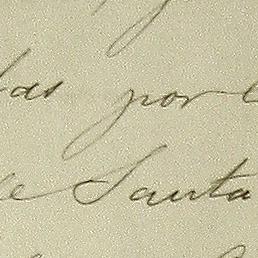 das por
de Santa